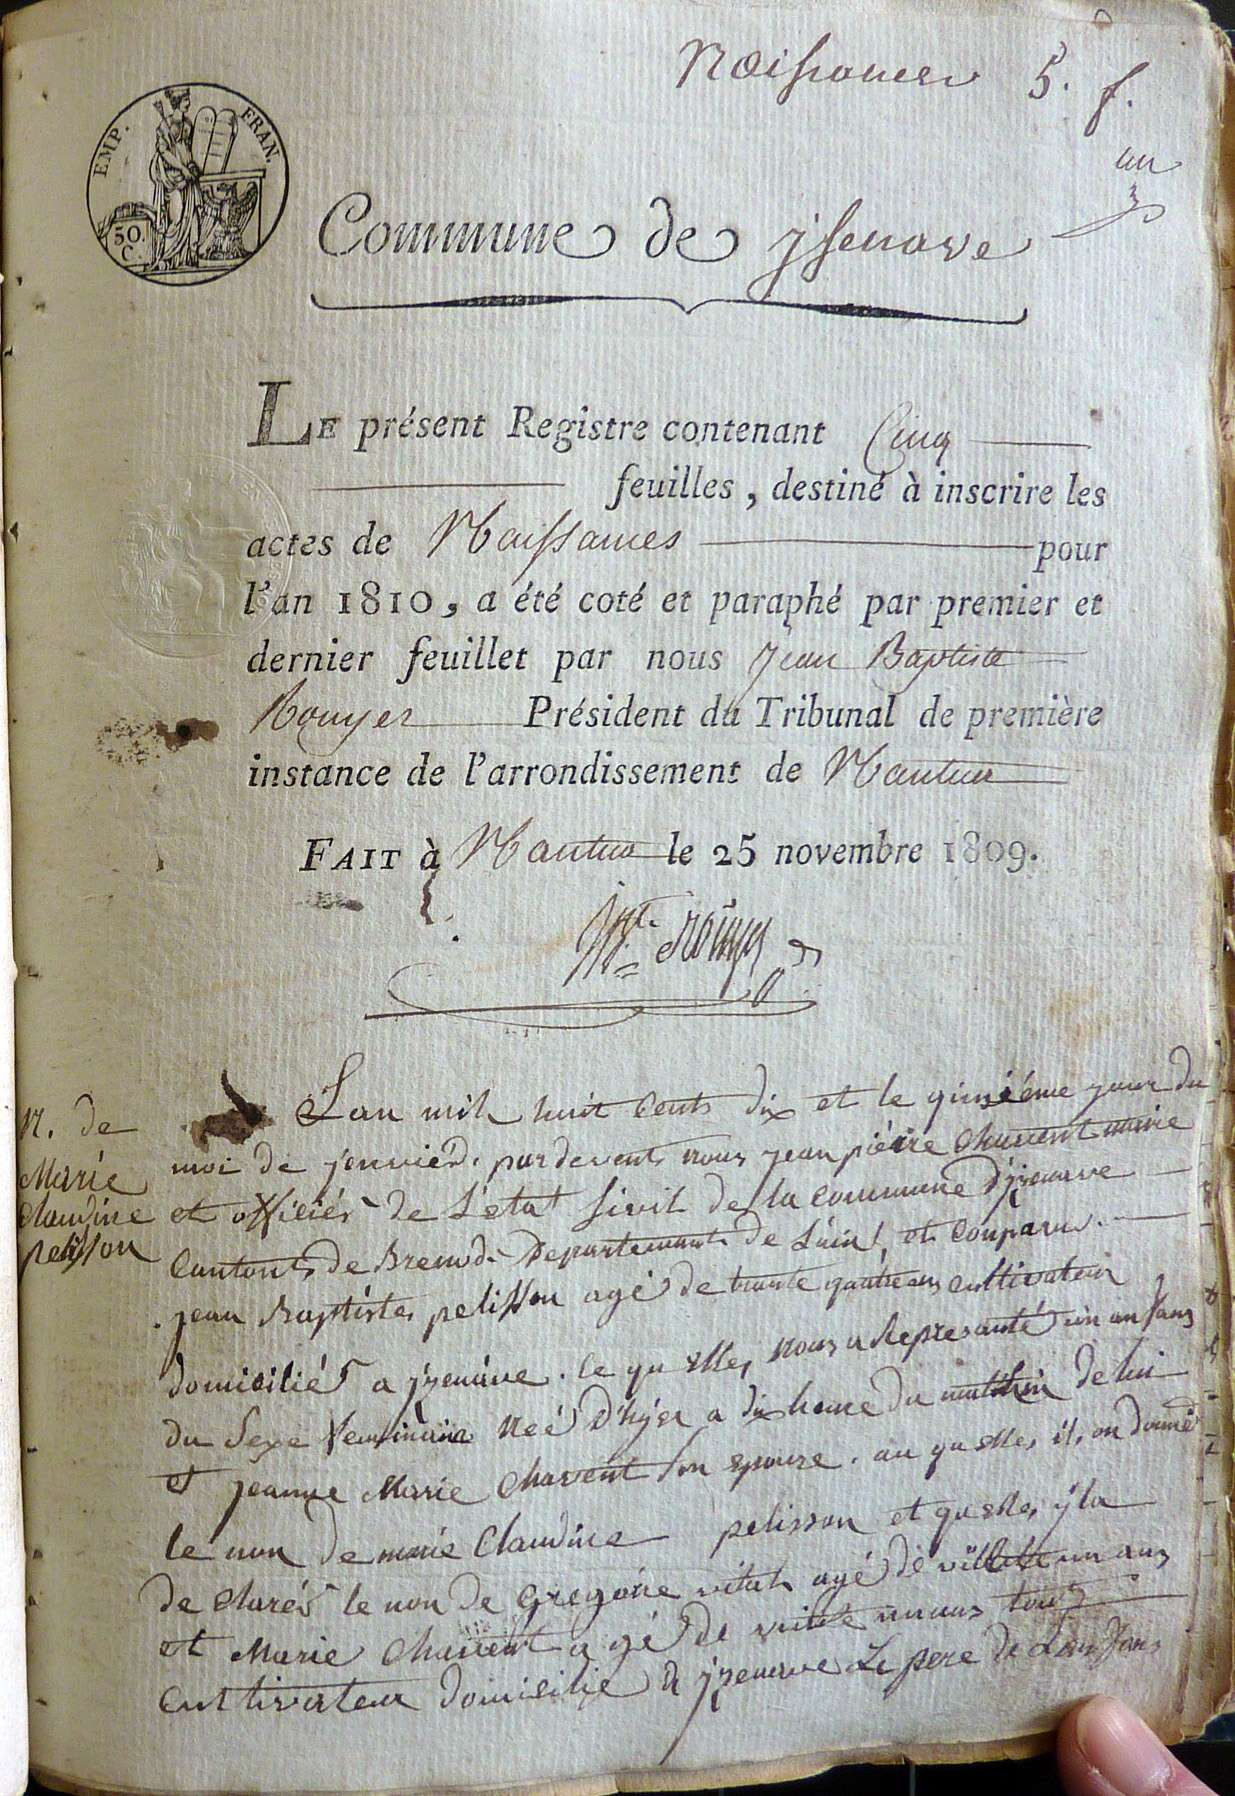 Naissances 5. f.
un
EMP. FRAN.
50. C.
Commune de jsenave
LE présent Registre contenant Cinq
feuilles, destiné à inscrire les
actes de Naissances pour
l'an 1810, a été coté et paraphé par premier et
dernier feuillet par nous Jean Baptiste
Rouyer Président du Tribunal de première
instance de l'arrondissement de Nantua
FAIT à Nantua le 25 novembre 1809.
Rouyer
N. de
Marie
Claudine
pelisson
L'an mil huit Cents dix et le quinsiéme jour du
moi de jenviér. pardevents nous jean piérre Chavent maire
et officiér de L'etat sivil de la commune D'jzenave
Cantonts de Brenod. Departements de L'ain, et Conparu.
jean Baptiste pelisson agé de trante quatre ans cultivateur
domicilié a jzenave. le quelle, nous a Represanté un anfans
du Sexe feminin Neé D'hyer a dix heure du mathin de lui
et jeanne Marie Chavent son epouze. au quelle, il, on donné
le non de marie Claudine pelisson et quelle, y la
de Claré le non de Gregoire vital agé de un ans
et Marie Chavent agé de un ans tous
Cultivateur domicilie a jzenave Le pere de Lanfans